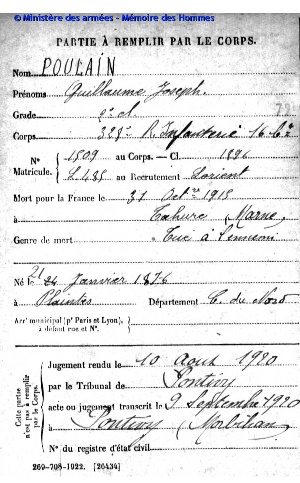 © Ministère des armées - Mémoire des Hommes
PARTIE À REMPLIR PAR LE CORPS.
Nom POULAIN
Prénoms Guillaume Joseph
Grade 2e cl.
Corps 328e R. Infanterie 16 Cie
N° 1509 au Corps. — Cl. 1896
Matricule. L. 485 au Recrutement Lorient
Mort pour la France le 31 Octbre 1915
à Tahure Marne
Genre de mort Tué à l'ennemi
21
Né le 24 Janvier 1876
à Département C. du Nord
Arrt municipal (pr Paris et Lyon),
à défaut rue et N°.
Cette partie
n'est pas à remplir
par le Corps.
Jugement rendu le 10 Août 1920
par le Tribunal de Pontivy
acte ou jugement transcrit le 9 Septembre 1920
à Pontivy (Morbihan)
N° du registre d'état civil
269-708-1922. [26434]